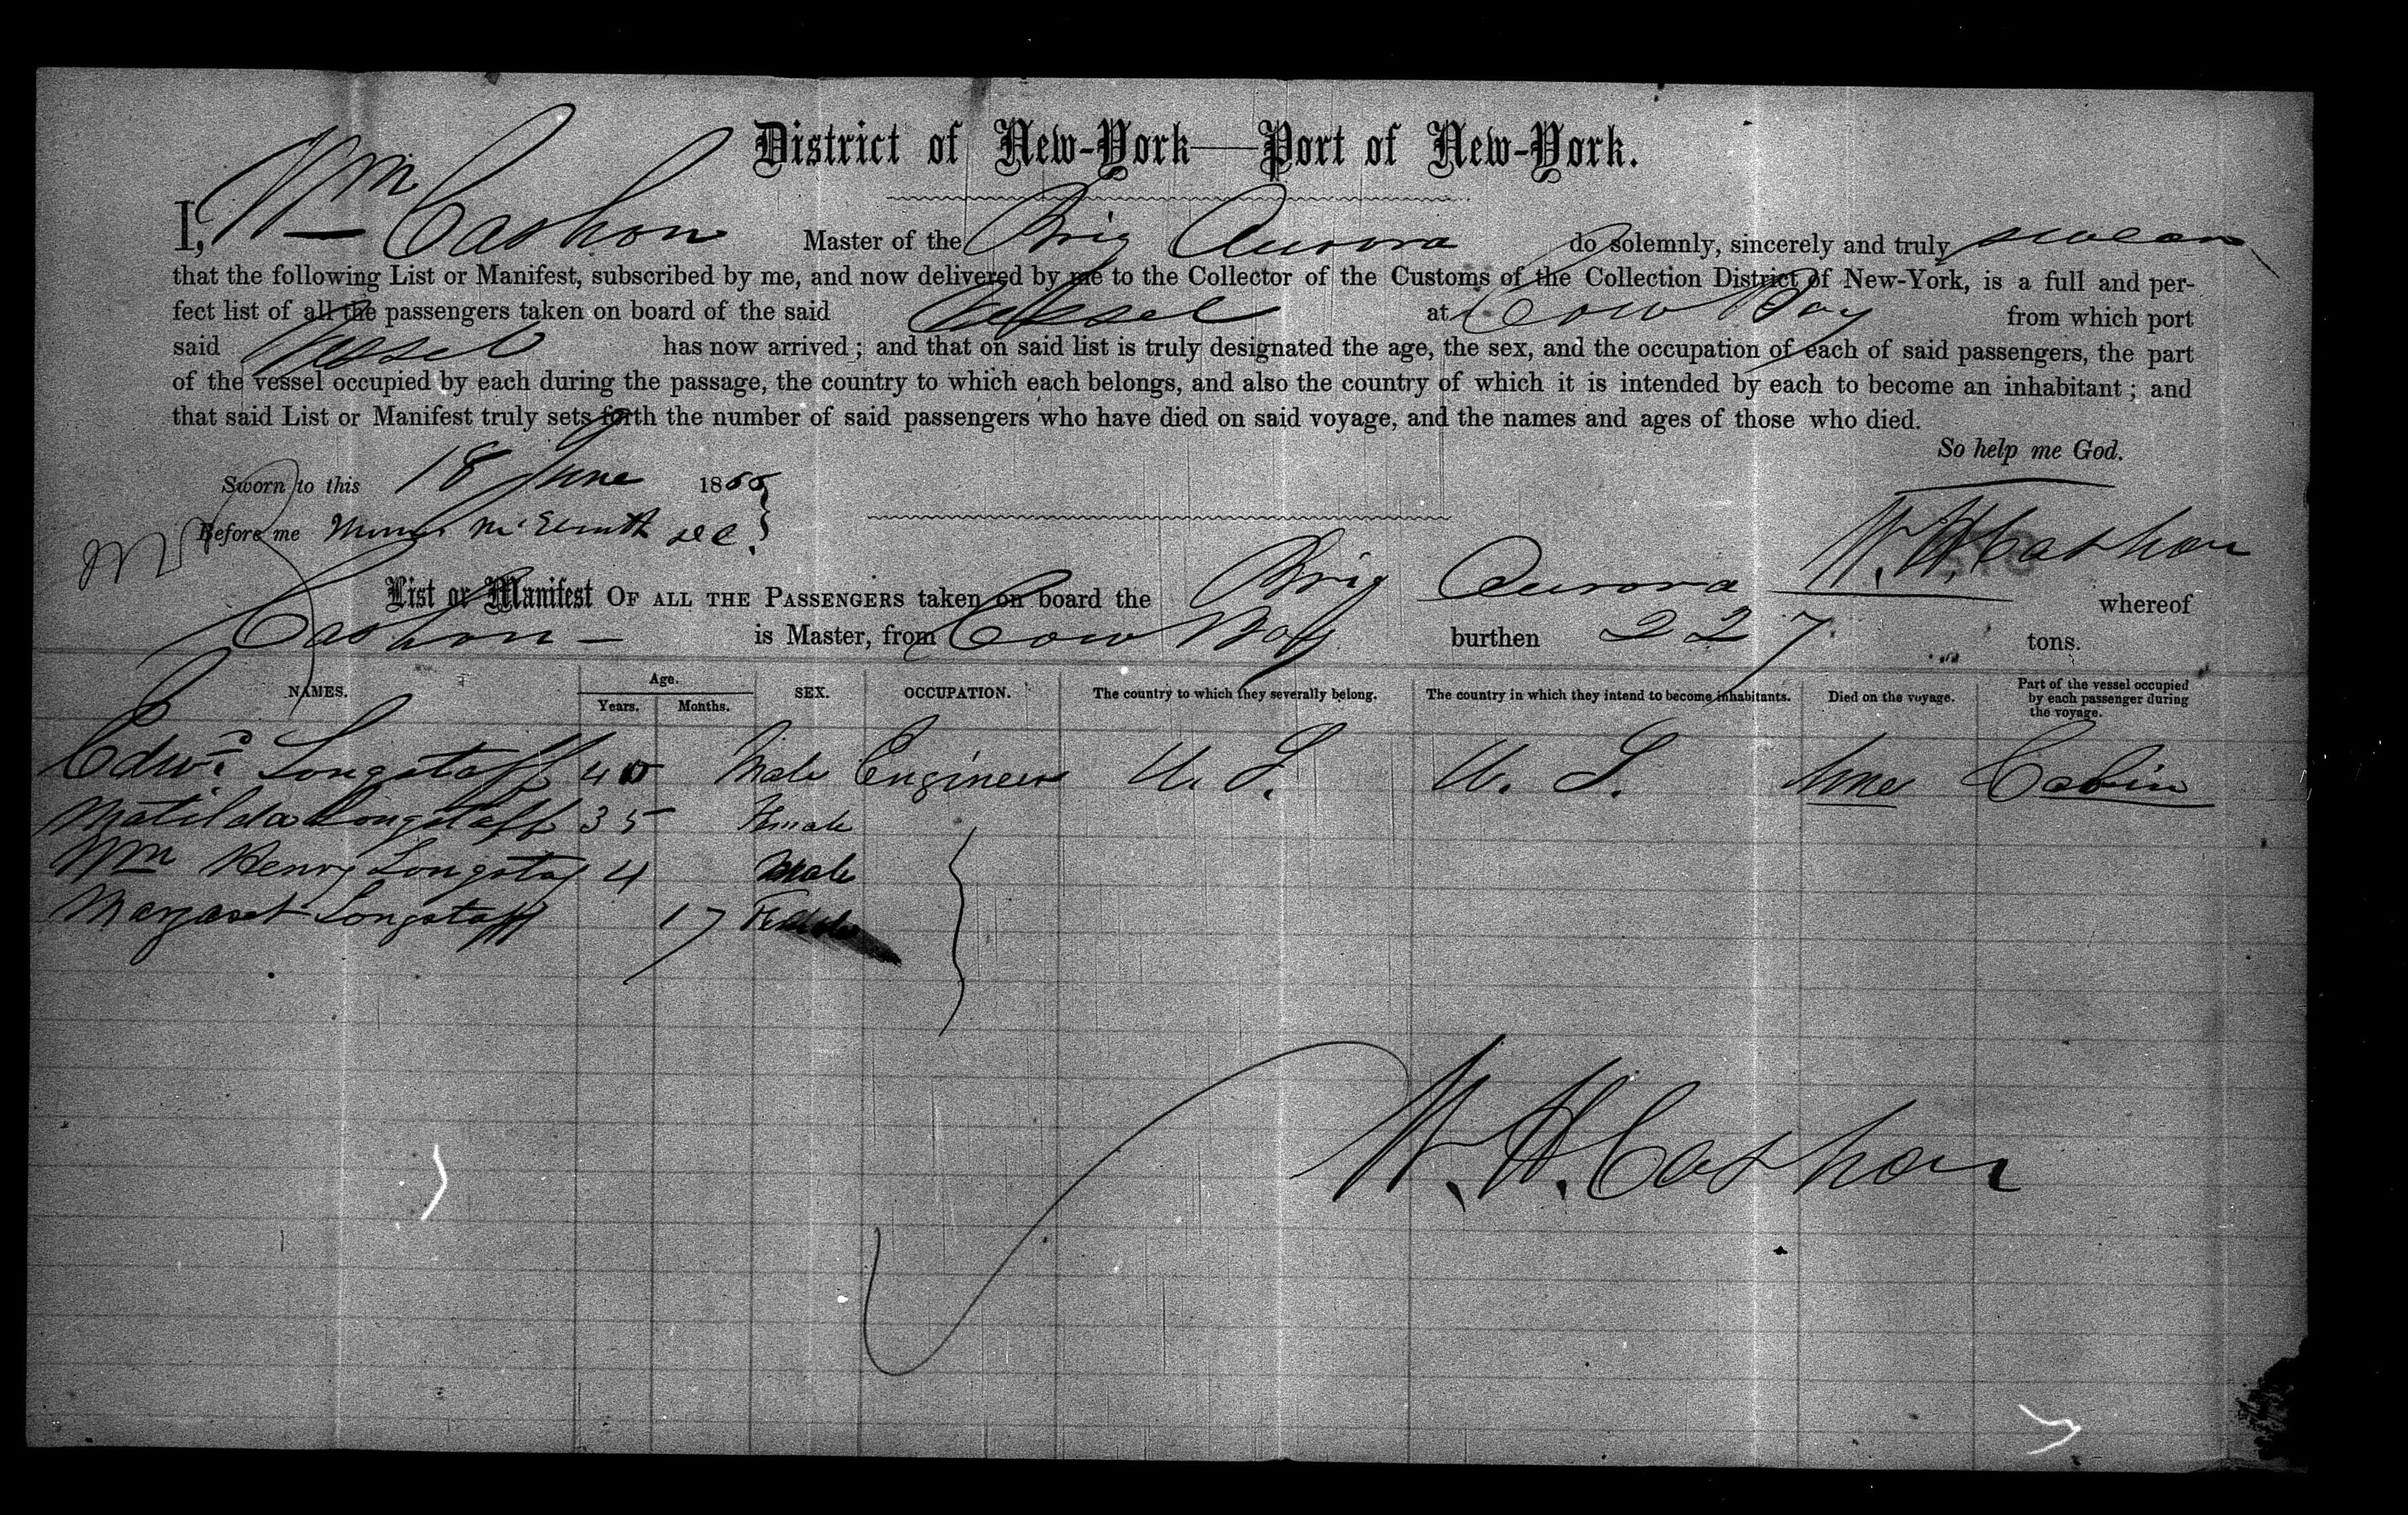 District of New-York—Port of New-York.
I, Wm Cashon Master of the Brig Aurora do solemnly, sincerely and truly swear
that the following List or Manifest, subscribed by me, and now delivered by me to the Collector of the Customs of the Collection District of New-York, is a full and per-
fect list of all the passengers taken on board of the said Vessel at Cow Bay from which port
said Vessel has now arrived; and that on said list is truly designated the age, the sex, and the occupation of each of said passengers, the part
of the vessel occupied by each during the passage, the country to which each belongs, and also the country of which it is intended by each to become an inhabitant; and
that said List or Manifest truly sets forth the number of said passengers who have died on said voyage, and the names and ages of those who died.
So help me God.
Sworn to this 18 June 1866
Before me
W. H. Cashon
List or Manifest OF ALL THE PASSENGERS taken on board the Brig Aurora whereof
Cashon — is Master, from Cow Bay burthen 227 tons.
NAMES. Age. Years. Months. SEX. OCCUPATION. The country to which they severally belong. The country in which they intend to become inhabitants. Died on the voyage. Part of the vessel occupied by each passenger during the voyage.
Edwd Longstaff 40 Male Engineer U. S. U. S. None Cabin
Matilda Longstaff 35 Female
Wm Henry Longstaff 4 Male
Margaret Longstaff 17 Female
W. H. Cashon